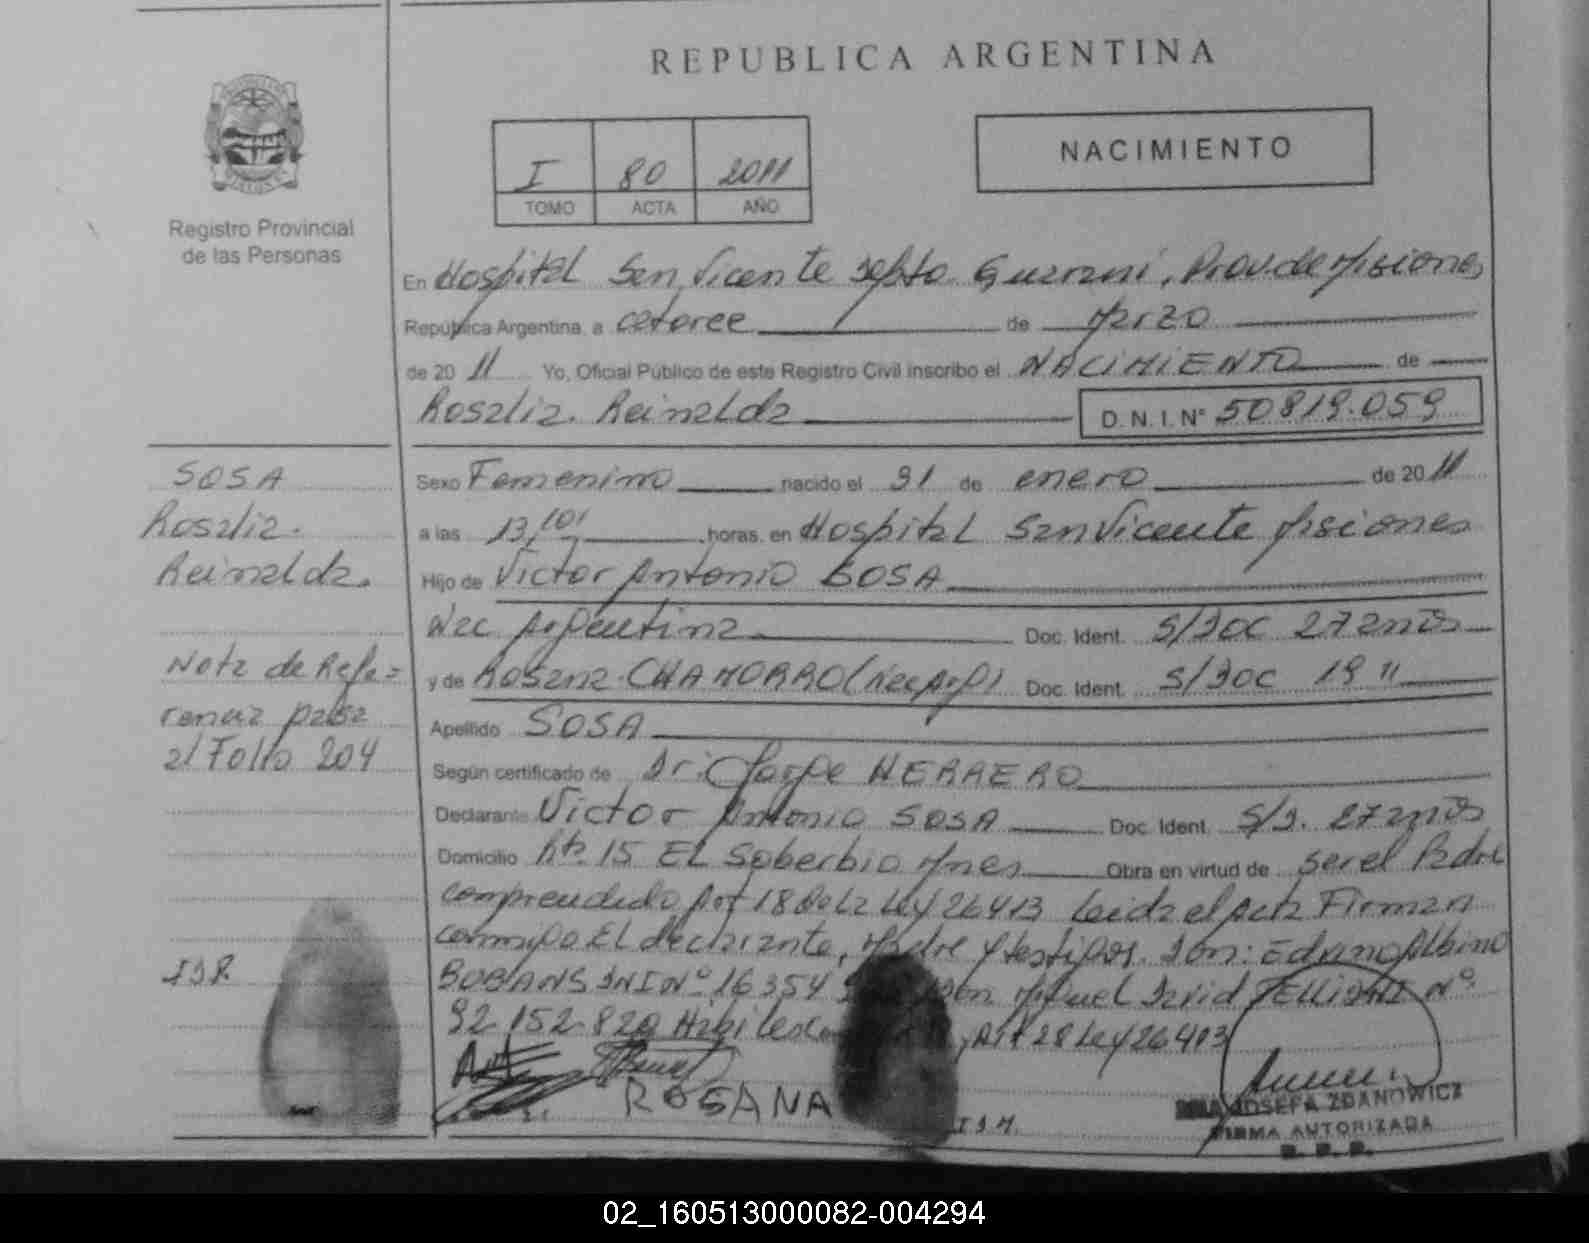 REPUBLICA ARGENTINA
NACIMIENTO
I 80 2011
TOMO ACTA AÑO
Registro Provincial
de las Personas
En Hospital San Vicente Depto Guarani, Prov. de Misiones
República Argentina, a catorce de Marzo
de 2011 Yo, Oficial Público de este Registro Civil inscribo el NACIMIENTO de
Rosalia. Reinalda D.N.I. Nº 50819.059
SOSA
Rosalia.
Reinalda.
Nota de Refe=
rencia pasa
al Folio 204
I D R
Sexo Femenino nacido el 31 de enero de 2011
a las 13,101 horas, en Hospital San Vicente Misiones
Hijo de Victor Antonio SOSA
Nac Argentina Doc. Ident. S/Doc 27 años
y de Rosana CHAMORRO (Nac Arg) Doc. Ident. S/Doc 19 "
Apellido SOSA
Según certificado de Dr: Jorge HERRERO
Declarante Victor Antonio SOSA Doc. Ident. S/D. 27 años
Domicilio km. 15 EL Soberbio Mnes Obra en virtud de ser el Padre
comprendido Art 18 De La Ley 26413 Leida el Acta Firman
conmigo El declarante, Madre y testigos. Don: Albino
DNI Nº 16354 Don Miguel David Nº
92.152.820 Habiles Art 28 Ley 26413
ROSANA
I D M.
JOSEFA ZDANOWICZ
FIRMA AUTORIZADA
R. P. P.
02_160513000082-004294